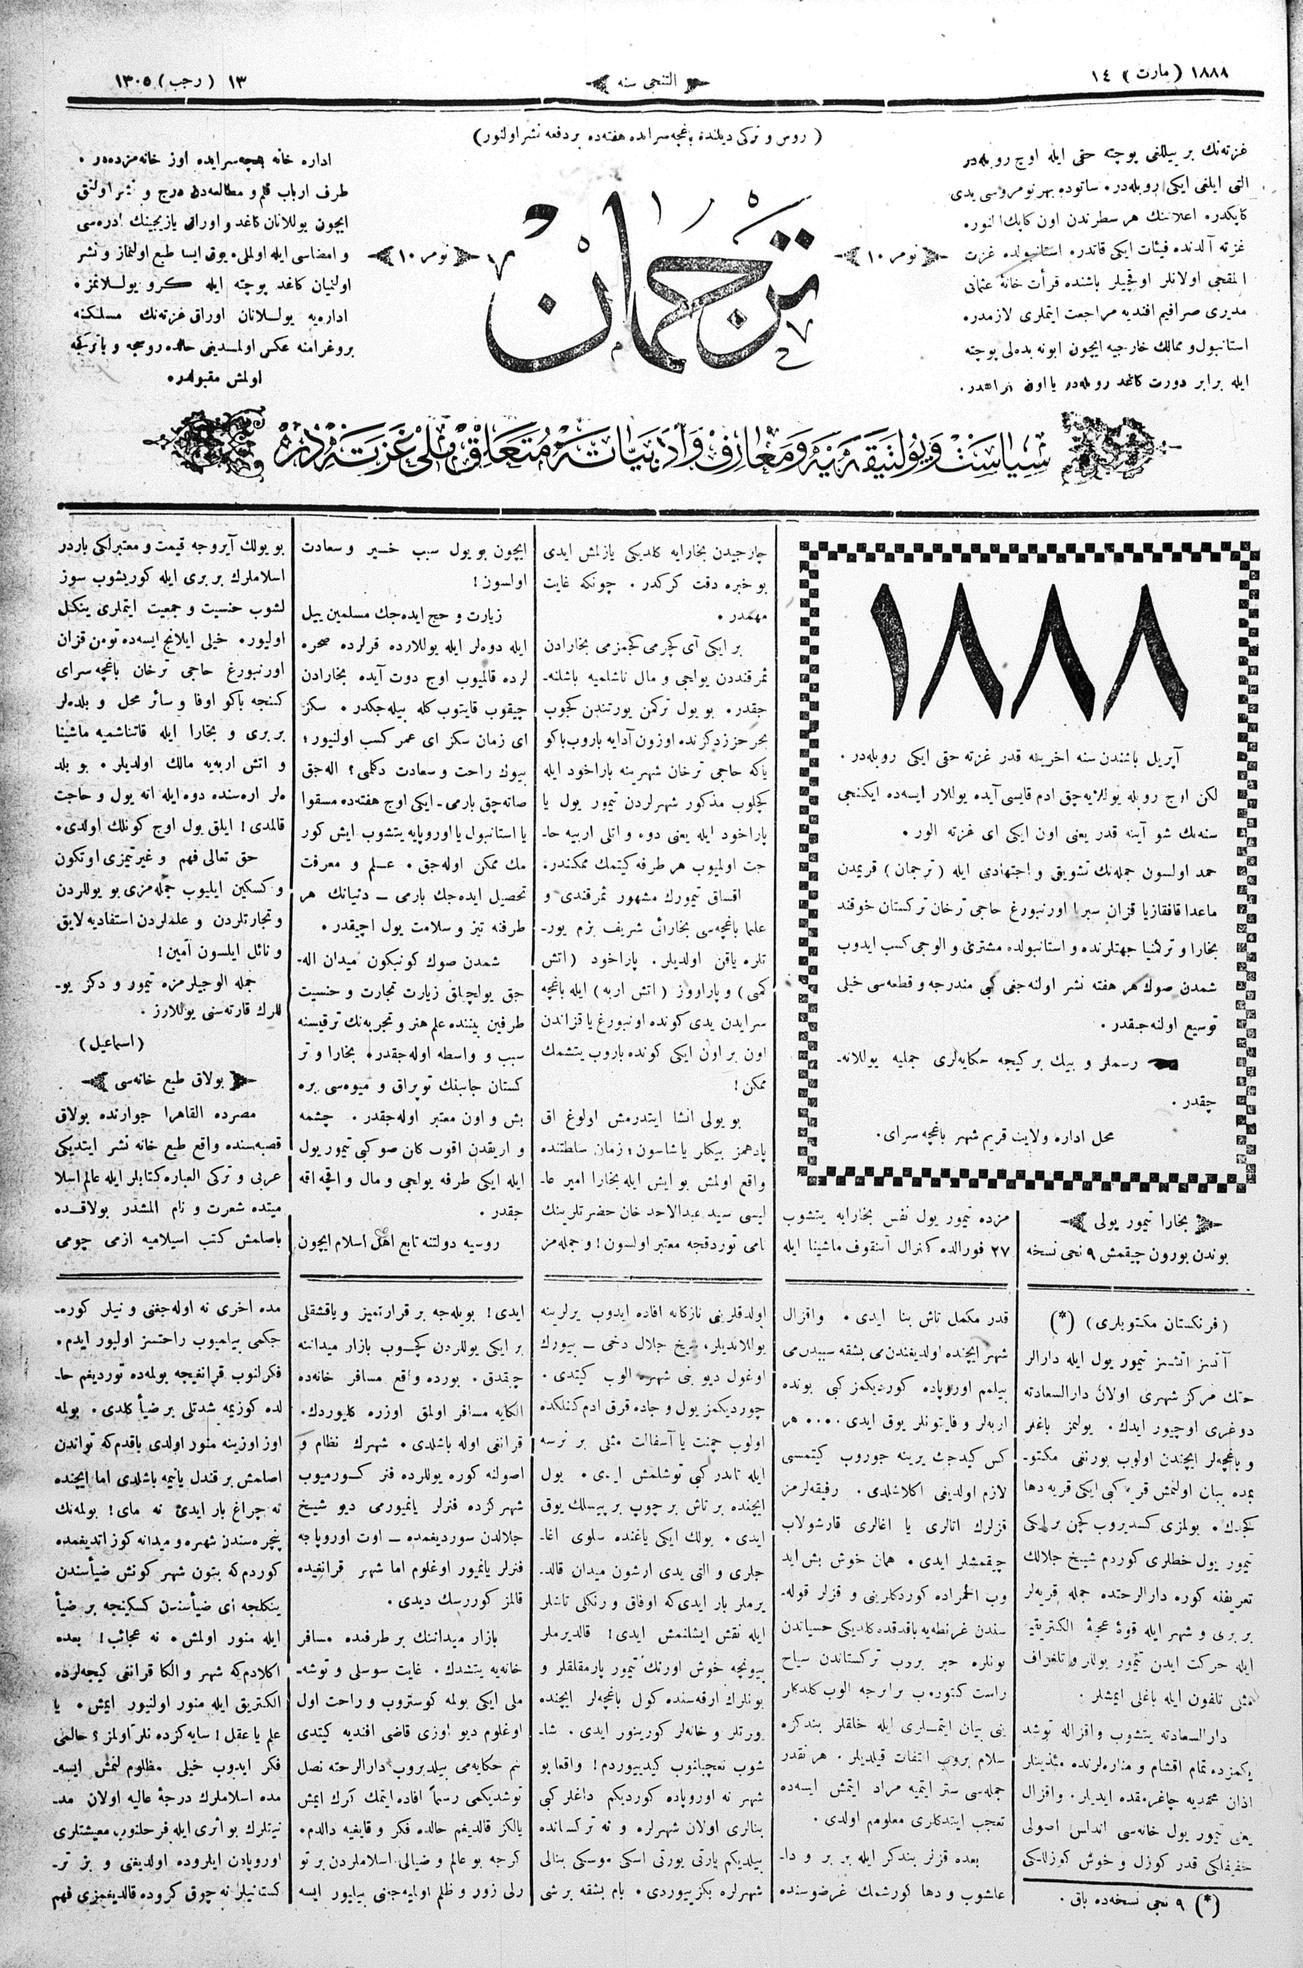 ١٨٨٨ (مارت) ١٤
التنجی سنه
١٣ (رجب) ١٣٠٥
(روس و ترکی دیلنده باغچه‌سرایده هفته‌ده بر دفعه نشر اولنور)
غزته‌نك بر ییللغی پوچته حقی ایله اوچ روبله‌در
التی ایلغی ایکی روبله‌در. ساتوده بهر نومروسی یدی
کاپکدر. اعلاننك هر سطرندن اون کاپك النور.
غزته آلدنده فیئات ایکی قاتدر. استانبولده غزت
المقجی اولانلر اوقجیلر باشنده قرأت خانهٔ عثمانی
مدیری صرافیم افندیه مراجعت ایتملری لازمدر.
استانبول و ممالك خارجیه ایچون ابونه بده‌لی پوچته
ایله برابر دورت کاغد روبله‌در یا اون فرانقدر.
نومر ١٠
ترجمان
نومر ١٠
اداره خانه باغچه‌سرایده اوز خانه‌مزده‌در.
طرف ارباب قلم و مطالعه‌دن درج و نشر اولنمق
ایچون یوللانان کاغد و اوراق یازیجینك ادره‌سی
و امضاسی ایله اولملی. یوق ایسا طبع اولنماز و نشر
اولنمیان کاغد پوچته ایله کرو یوللانمز.
اداره‌یه یوللانان اوراق غزته‌نك مسلکنه
پروغرامنه عکس اولمدیغی حالده روسچه و یا ترکچه
اولمش مقبولدر.
سیاست و پولتیقه‌یه و معارف و ادبیاته متعلق ملی غزته‌در
١٨٨٨
آپریل باشندن سنه اخرینه قدر غزته حقی ایکی روبله‌در.
لکن اوچ روبله یوللایه‌جق ادم قایسی آیده یوللار ایسه‌ده ایکنجی
سنه‌نك شو آینه قدر یعنی اون ایکی ای غزته الور.
حمد اولسون جمله‌نك تشویق و اجتهادی ایله (ترجمان) قریمدن
ماعدا قافقازیا قزان سبریا اورنبورغ حاجی ترخان ترکستان خوقند
بخارا و ترکمنیا جهتلرنده و استانبولده مشتری و الوجی کسب ایدوب
شمدن صوك هر هفته نشر اولنه‌جغی کبی مندرجه و قطعه‌سی خیلی
توسیع اولنه‌جقدر.
رسملر و بیك بر کیجه حکایه‌لری جملیه یوللانه‌ـ
جقدر.
محل اداره ولایت قریم شهر باغچه سرای.
بخارا تیمور یولی
بوندن بورون چیقمش ٩ نجی نسخه
مزده تیمور یول نفس بخارایه یتشوب
٢٧ فورالده کنرال آننقوف ماشینا ایله
چارجیدن بخارایه کلدیکی یازلمش ایدی
بو خبره دقت کرکدر. چونکه غایت
مهمدر.
بر ایکی آی کچرمی کچمزمی بخارادن
ثمرقنددن یولجی و مال ناشلمیه باشلنه‌ـ
جقدر. بو یول ترکمن یورتندن کچوب
بحر حزز دکرنده اوزون آدایه باروب باکو
یاکه حاجی ترخان شهرینه پاراخود ایله
کچلوب مذکور شهرلردن تیمور یول یا
پاراخود ایله یعنی دوه و اتلی اربیه حا‌ـ
جت اولمیوب هر طرفه کیتمك ممکندر.
اقساق تیمورك مشهور ثمرقندی و
علما باغچه‌سی بخارائی شریف بزم یور‌ـ
تلره یاقن اولدیلر. پاراخود (اتش
کمی) و پاراووز (اتش اربه) ایله باغچه
سرایدن یدی کونده اونبورغ یا قزاندن
اون بر اون ایکی کونده باروب یتشمك
ممکن!
بو یولی انشا ایتدرمش اولوغ اق
پادهمز بیکلر یاشاسون؛ زمان سلطتنده
واقع اولمش بو ایش ایله بخارا امیر عا‌ـ
لیسی سید عبدالاحد خان حضرتلرینك
نامی توردقجه معتبر اولسون! و جمله‌مز
ایچون بو یول سبب خسیر و سعادت
اولسون!
زیارت و حج ایده‌جك مسلمین ییل
ایله دوه‌لر ایله یوللارده قرلرده صحره
لرده قالمیوب اوچ دوت آیده بخارادن
چیقوب قایتوب کله بیله‌جکدر. سکز
ای زمان سکز ای عمر کسب اولنیور؛
بیوك راحت و سعادت دکلمی؟ اله‌جق
صاته‌جق بارمی ـ ایکی اوچ هفته‌ده مسقوا
یا استانبول یا اوروپایه یتشوب ایش کور
مك ممکن اوله‌جق. عسلم و معرفت
تحصیل ایده‌جك بارمی ــ دنیانك هر
طرفنه تیز و سلامت یول اچیقدر.
شمدن صوك کونبکون میدان اله‌ـ
جق یولچیلق زیارت تجارت و حنسیت
طرفین بیننده علم هنر و تجربه‌نك ترقیسنه
سبب و واسطه اوله‌جقدر. بخارا و تر
کستان جانبنك توپراق و میوه‌سی بره
بش و اون معتبر اوله‌جقدر. چشمه
و اریقدن اقوب کان صو کبی تیمور یول
ایله ایکی طرفه یولجی و مال و اقچه اقه
جقدر.
روسیه دولتنه تابع اهل اسلام ایچون
بو یولك آیروجه قیمت و معتبرلکی باردر
اسلاملرك بر بری ایله کوریشوب سوز
لشوب حنسیت و جمعیت ایتملری ینکل
اولیور. خیلی ایلانج ایسه‌ده تومن قزان
اورنبورغ حاجی ترخان باغچه سرای
کنجه باکو اوفا و سائر محل و بلده‌لر
بر بری و بخارا ایله قاتناشمیه ماشینا
و اتش اربه‌یه مالك اولدیلر. بو بلد
ه‌لر اره‌سنده دوه ایله انه یول و حاجت
قالمدی! ایلق یول اوچ کونلك اولدی.
حق تعالی فهم و غیرتیمزی اوتکون
و کسکین ایلیوب جمله‌مزی بو یوللردن
و تجارتلردن و علملردن استفادیه لایق
و نائل ایلسون آمین!
جمله الوجیلرمزه تیمور و دکز یو‌ـ
للرك قارته‌سنی یوللارز.
(اسماعیل)
بولاق طبع خانه‌سی
مصرده القاهرا جوارنده بولاق
قصبه‌سنده واقع طبع خانه نشر ایتدیکی
عربی و ترکی العباره کتابلر ایله عالم اسلا
میتده شهرت و نام المشدر بولاقـده
باصلمش کتب اسلامیه ازمی چومی
(فرنکستان مکتوبلری) (*)
آتسز اتشسز تیمور یول ایله دارالر
حتك مرکز شهری اولان دارالسعادته
دوغری اوچیور ایدك. یولمز باغلر
و باغچه‌لر ایچندن اولوب بورنغی مکتو‌ـ
بمده بیان اولنمش قریه کبی ایکی قریه دها
کچدك. یولمزی کسدیروب کچن بر ایکی
تیمور یول خطلری کوردم شیخ جلالك
تعریفنه کوره دارالرحتده جمله قریه‌لر
بر بری و شهر ایله قوهٔ عجیبهٔ الکتریقیه
ایله حرکت ایدن تیمور یوللر و تلغراف
مثلی تلفون ایله باغلی ایمشلر.
دارالسعادته یتشوب واقزاله توشد
یکمزده تمام اقشام و مناره‌لرنده مئذینلر
اذان محمدیه چاغرمقده ایدیلر. واقزال
یعنی تیمور یول خانه‌سی اندلس اصولی
خفیفلکی قدر کوزل و خوش کوزللکی
(*) ٩ نجی نسخه‌ده باق.
قدر مکمل تاش بنا ایدی. واقزال
شهر ایچنده اولدیغندنمی بشقه سببدنمی
بیلمم اوروپاده کوردیکمز کبی بونده
اربه‌لر و فایتونلر یوق ایدی.... هر
کس کیده‌جك یرینه جوروب کیتمسی
لازم اولدیغی اکلاشلدی. رفیقه‌لرمز
قزلرك انالری یا اغالری قارشولاب
چیقمشلر ایدی. همان خوش بش اید
وب الحمراده کوردکلرینی و قزلر قوله‌ـ
سندن غرنطه‌یه باقدقده کلدیکی حسیاتدن
بونلره خبر بروب ترکستاندن سیاح
راست کتوروب برابرجه الوب کلدکلر
ینی بیان ایتملری ایله خلقلر بندکزه
سلام بروب التفات قیلدیلر. هر نقدر
جمله‌سی ستر ایتمیه مراد ایتمش ایسه‌ده
تعجب ایتدکلری معلومم اولدی.
بعده قزلر بندکز ایله بر بر و دا‌ـ
عاشوب و دها کورشمك غرضوسنده
اولدقلرینی نازکانه افاده ایدوب یرلرینه
یوللاندیلر. شیخ جلال دخی ــ بیورك
اوغول دیو بنی شهره الوب کیتدی.
چوردیکمز یول و جاده قرق ادم کنلکده
اولوب چمنت یا آسفالت مثلی بر نرسه
ایله تاندر کبی توشلمش ایدی. یول
ایچنده بر تاش بر چوپ بر پیسلك یوق
ایدی. یولك ایکی یاغنده سلوی اغا‌ـ
جلری و التی یدی ارشون میدان قالد‌ـ
یرملر بار ایدی‌که اوفاق و رنکلی تاشلر
ایله نقش ایشلنمش ایدی! قالدیرملر
بیونچه خوش اورنك تیمور پارمقلقلر و
بونلرك ارقه‌سنده کول باغچه‌لر ایچنده
ورتلر و خانه‌لر کورینور ایدی. شا‌ـ
شوب تعجبلنوب کیدییوردم! واقعا بو
شهر نه اوروپاده کوردیکم داغلر کبی
بنالری اولان شهرلره و نه ترکستانده
بیلدیکم یارتی یورتی اسکی موسکی بنالی
شهرلره بکزییوردی. بام بشقه بر شی
ایدی! بویله‌جه بر قرارتمیز و یاقشقلی
بر ایکی یوللردن کچوب بازار میداننه
چیقدق. بورده واقع مسافر خانه‌ده
الکایه مسافر اولمق اوزره کلیوردك.
قرانغی اوله باشلدی. شهرك نظام و
اصولنه کوره یوللرده فنر کسورمیوب
شهرکزده فنرلر یانمیورمی دیو شیخ
جلالدن سوردیغمده ــ اوت اوروپاجه
فنرلر یانمیور اوغلوم اما شهر قرانغیده
قالمز کوررسك دیدی.
بازار میداننك بر طرفنده مسافر
خانه‌یه یتشدك. غایت سوسلی و توشه‌ـ
ملی ایکی بولمه کوستروب و راحت اول
اوغلوم دیو اوزی قاضی افندیه کیتدی
بنم حکایه‌می بیلدیروب دارالرحته نصل
توشدیکمی رسماً افاده ایتمك کرك ایمش
یالکز قالدیغم حالده فکر و قایغیه دالدم.
کرجه بو عالم و ضیالی اسلاملردن بر تو
رلی زور و ظلم اولمیه‌جغنی بیلیور ایسه
مده اخری نه اوله‌جغنی و نیلر کوره‌ـ
جکمی بیلمیوب راحتسز اولیور ایدم.
فکرلنوب قرانغیجه بولمه‌ده توردیغم حا‌ـ
لده کوزیمه شدتلی بر ضیأ کلدی. بولمه
اوز اوزینه منور اولدی باقدم‌که تواندن
اصلمش بر قندل یانیمه باشلدی اما ایچنده
نه چراغ بار ایدی نه مای! بولمه‌نك
پنجره‌سندن شهره و میدانه کوز اتدیغمده
کوردم‌که بتون شهر کونش ضیأسندن
ینکلجه ای ضیأسندن کسکینجه بر ضیأ
ایله منور اولمش. نه عجائب! بعده
اکلادم‌که شهر و الکا قرانغی کیجه‌لرده
الکتریق ایله منور اولنیور ایمش. یا
علم یا عقل! سایه‌کزده نلر اولمز؟ حالمی
فکر ایدوب خیلی مظلوم لنمش ایسه‌ـ
مده اسلاملرك درجهٔ عالیه اولان مد‌ـ
نیتلرك بو اثری ایله فرحلنوب معیشتلری
اوروپادن ایلروده اولدیغنی و بز تر‌ـ
کستنلیلر نه چوق کروده قالدیغمزی فهم